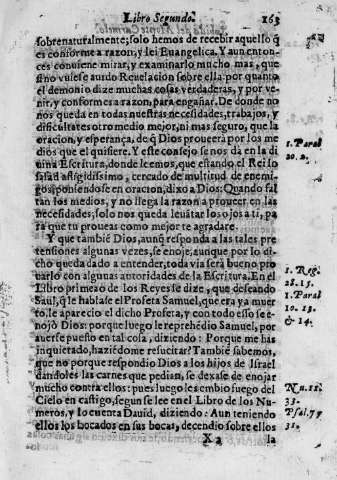 Libro Segundo. 163
sobrenaturalmente; solo hemos de recebir aquello q̃
es conforme a razon, y lei Euangelica. Y aun enton-
ces conuiene mirar, y examinarlo mucho mas, que
sino vuiese auido Reuelacion sobre ella por quanto
el demonio dize muchas cosas verdaderas, y por ve-
nir, y conformes a razon, para engañar. De donde no
nos queda en todas nuestras necesidades, trabajos, y
dificultates otro medio mejor, ni mas seguro, que la
oracion, y esperança, de q̃ Dios proueera por los me
dios que el quisiere. Y este consejo se nos da en la di
uina Escritura, donde leemos, que estando el Rei Io
safad afligidissimo, cercado de multitud de enemi-
gos, poniendose en oracion, dixo a Dios: Quando fal
tan los medios, y no llega la razon a proueer en las
necesidades; solo nos queda leuãtar los ojos a ti, pa
ra que tu proueas como mejor te agradare.
1. Paral
20. 2.
Y que tambiẽ Dios, aunq̃ responda a las tales pre
tensiones algunas vezes, se enoje, aunque por lo di-
cho queda dado a entender, toda via será bueno pro
uarlo con algunas autoridades de la Escritura. En el
Libro primero de los Reyes se dize, que deseando
Saul, q̃ le hablase el Profeta Samuel, que era ya muer
to, le aparecio el dicho Profeta, y con todo esso se e-
nojò Dios: porque luego le reprehẽdio Samuel, por
auerse puesto en tal cosa, diziendo: Porque me has
inquietado, haziẽdome resucitar? Tambiẽ sabemos,
que no porque respondio Dios a los hijos de Israel
dandoles las carnes que pedian, se dexase de enojar
mucho contra ellos: pues luego les embio fuego del
Cielo en castigo, segun se lee en el Libro de los Nu-
meros, y lo cuenta Dauid, diziendo: Aun teniendo
ellos los bocados en sus bocas, decendio sobre ellos
1. Reg.
28. 15.
1. Paral
10. 13.
& 14.
Nu. 11.
33.
Psal. 77
31.
X 2 la